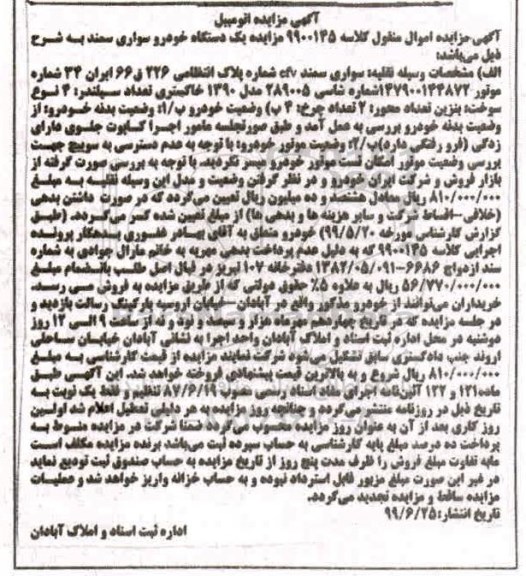 آگهی مزایده اتومبیل
آگهی مزایده اموال منقول کلاسه ۹۹۰۰۱۴۵ مزایده یک دستگاه خودرو سواری سمند به شرح
ذیل می‌باشد:
الف) مشخصات وسیله نقلیه: سواری سمند cfv شماره پلاک انتظامی ۲۲۶ ق ۶۶ ایران ۳۴ شماره
موتور ۱۴۷۹۰۰۱۴۴۸۷۲ شماره شاسی ۲۸۹۰۰۵ مدل ۱۳۹۰ خاکستری تعداد سیلندر: ۴ نوع
سوخت: بنزین تعداد محور: ۲ تعداد چرخ: ۴ ب) وضعیت خودرو ب/۱: وضعیت بدنه خودرو: از
وضعیت بدنه خودرو بررسی به عمل آمد و طبق صورتجلسه مامور اجرا کاپوت جلوی دارای
زدگی (فرو رفتگی دارد) ب/۲: وضعیت موتور خودرو: با توجه به عدم دسترسی به سوییچ جهت
بررسی وضعیت موتور امکان تست موتور خودرو میسر نگردید. با توجه به بررسی صورت گرفته از
بازار فروش و شرکت ایران خودرو و در نظر گرفتن وضعیت و مدل این وسیله نقلیه به مبلغ
۸۱۰/۰۰۰/۰۰۰ ریال معادل هشتصد و ده میلیون ریال تعیین می‌گردد که در صورت داشتن بدهی
(خلافی-اقساط شرکت و سایر هزینه ها و بدهی ها) از مبلغ تعیین شده کسر می‌گردد. (طبق
گزارش کارشناسی مورخه ۹۹/۵/۲۰) خودرو متعلق به آقای بهادر غفوری بدهکار پرونده
اجرایی کلاسه ۹۹۰۰۱۴۵ که به دلیل عدم پرداخت بدهی مهریه به خانم مارال جوادی به شماره
سند ازدواج ۶۶۸۶-۱۳۸۲/۰۵/۰۹ دفترخانه ۱۰۷ تبریز در قبال اصل طلب بانضمام مبلغ
۵۶/۷۷۰/۰۰۰/۰۰۰ ریال به علاوه ۵٪ حقوق دولتی که از طریق مزایده به فروش می رسد.
خریداران می‌توانند از خودرو مذکور واقع در آبادان -خیابان اروسیه پارکینگ رسالت بازدید و
در جلسه مزایده که در تاریخ چهاردهم مهرماه هزار و سیصد و نود و نه از ساعت ۹ الی ۱۲ روز
دوشنبه در محل اداره ثبت اسناد و املاک آبادان واحد اجرا به نشانی آبادان خیابان ساحلی
اروند جنب دادگستری سابق تشکیل می‌شود شرکت نمایند مزایده از قیمت کارشناسی به مبلغ
۸۱۰/۰۰۰/۰۰۰ ریال شروع و به بالاترین قیمت پیشنهادی فروخته خواهد شد. این آگهی طبق
ماده ۱۲۱ و ۱۲۲ آئین‌نامه اجرای مفاد اسناد رسمی مصوب ۸۷/۶/۱۹ تنظیم و فقط یک نوبت به
تاریخ ذیل در روزنامه منتشر می‌گردد و چنانچه روز مزایده به هر دلیلی تعطیل اعلام شد اولین
روز کاری بعد از آن به عنوان روز مزایده محسوب می‌گردد ضمنا شرکت در مزایده منوط به
پرداخت ده درصد مبلغ پایه کارشناسی به حساب سپرده ثبت می‌باشد برنده مزایده مکلف است
مابه تفاوت مبلغ فروش را ظرف مدت پنج روز از تاریخ مزایده به حساب صندوق ثبت تودیع نماید
در غیر این صورت مبلغ مزبور قابل استرداد نبوده و به حساب خزانه واریز خواهد شد و عملیات
مزایده ساقط و مزایده تجدید می‌گردد.
تاریخ انتشار: ۹۹/۶/۲۵
اداره ثبت اسناد و املاک آبادان